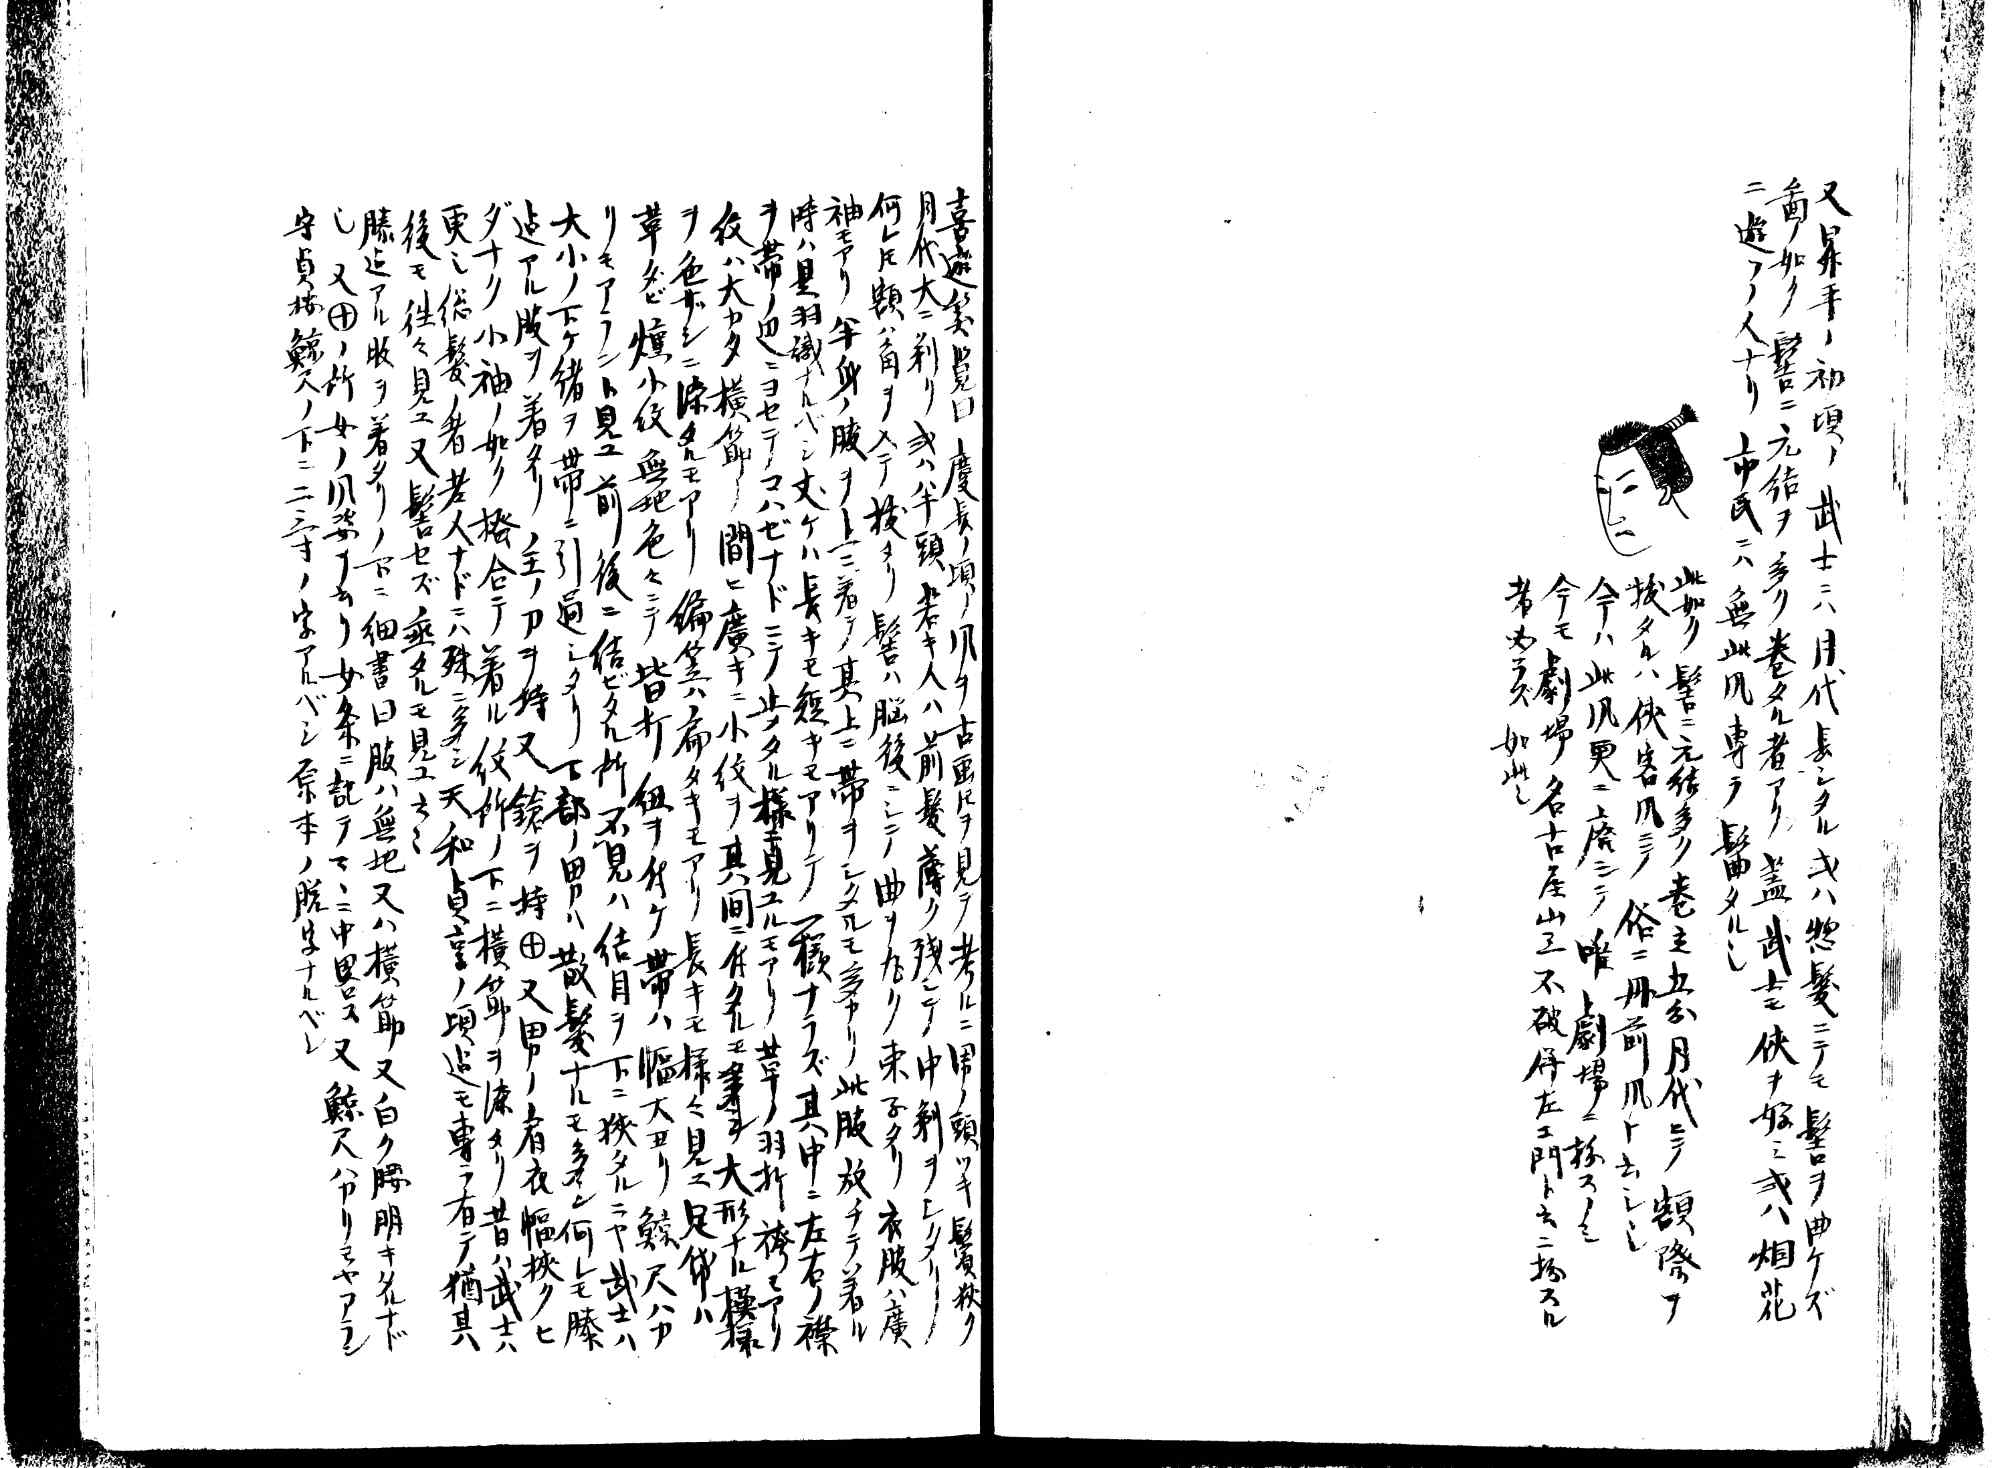 又昇平ノ初頃ノ武士ニハ月代長シタル或ハ惣髪ニテモ髻ヲ曲ケズ
畵ノ如ク髻ニ元結ヲ多ク巻タル者アリ蓋武士モ侠ヲ好ミ或ハ烟花
ニ遊フノ人ナリ市民ニハ無此風専ラ髷曲タル也
此如ク髻ニ元結多ク巻立五分月代ニテ額際ヲ
抜タルハ侠客風ニテ俗ニ丹前風ト云シ也
今ハ此風更ニ廃シテ唯劇場ニ稀スノミ
今モ劇場名古屋山三不破伴左エ門ト云ニ扮スル
者必ラズ如此也
喜遊笑覧曰慶長ノ頃ノ風ヲ古画氏ヲ見テ考ルニ男ノ頭ツキ鬢狭ク
月代大ニ剃リ或ハ半頭若キ人ハ前髪薄ク残シテ中剃ヲシタリ
何レモ額ハ角ヲ入テ抜タリ髻ハ脳後ニシテ曲ヲ九ク束子タリ衣服ハ廣
袖モアリ半身ノ服ヲ上ニ着テ其上ニ帯ヲシタルモ多カリ此服放チテ着ル
時ハ是羽織ナルベシ丈ケハ長キモ短キモアリテ一樣ナラズ其中ニ左右ノ襟
ヲ帯ノ辺ニヨセテコハゼナドニテ止メタル様モ見ユルモアリ革ノ羽折袴モアリ
紋ハ大カタ横筋ノ間ヒ廣キニ小紋ヲ其間ニ付タルモ多ク大形ナル模様
ヲ色ザシニ染タルモアリ編笠ハ扁タキモアリ長キモ様々見ユ足袋ハ
革タビ燻小紋無地色々ニテ皆打紐ヲ付ケ帯ハ幅大ヨリ鯨尺ハカ
リモアラント見ユ前後ニ結ビタル所不見ハ結目ヲ下ニ狭タルニヤ武士ハ
大小ノ下ケ緒ヲ帯ニ引過シタリ下部ノ男ハ散髪ナルモ多シ何レモ膝
迄アル服ヲ着タリ主ノ刀ヲ持又鎗ヲ持㊉又男ノ肩衣幅狭クヒ
ダナク小袖ノ如ク撥合テ着ル紋所ノ下ニ横筋ヲ染タリ昔ハ武士ハ
更也総髪ノ者若人ナドニハ殊ニ多シ天和貞享ノ頃迄モ専ラ有テ猶其
後モ往々見ユ又髻セズ垂タルモ見ユ云々
膝迄アル服ヲ着タリノ下ニ細書曰服ハ無地又ハ横筋又白ク腰明キタルナド
也又㊉ノ所女ノ風姿ヲ云リ女条ニ記テコヽニ中畧ス又鯨尺ハカリモヤアラン
守貞按鯨尺ノ下ニ二三寸ノ字アルベシ原本ノ脱字ナルベシ